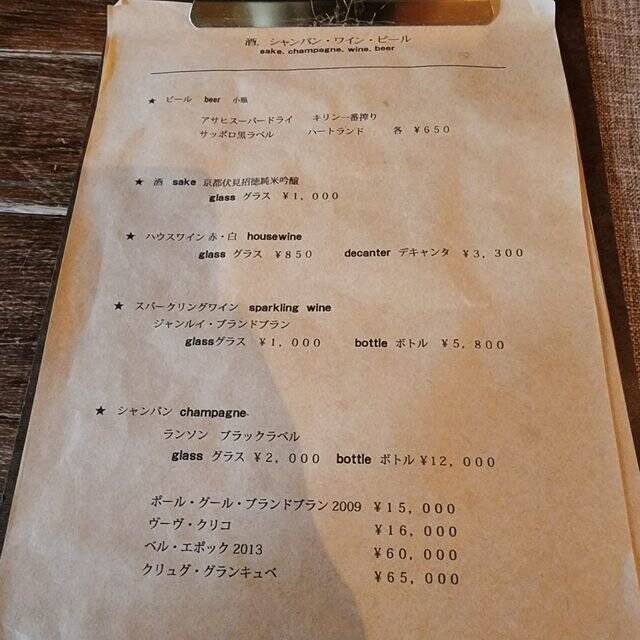 酒. シャンパン・ワイン・ビール
sake, champagne, wine, beer
★ ビール beer 小瓶
アサヒスーパードライ キリン一番搾り
サッポロ黒ラベル ハートランド 各 ￥650
★ 酒 sake 京都伏見招徳純米吟醸
glass グラス ￥1,000
★ ハウスワイン 赤・白 housewine
glass グラス ￥850 decanter デキャンタ ￥3,300
★ スパークリングワイン sparkling wine
ジャンルイ・ブランドブラン
glassグラス ￥1,000 bottle ボトル ￥5,800
★ シャンパン champagne、
ランソン ブラックラベル
glass グラス ￥2,000 bottle ボトル ￥12,000
ポール・グール・ブランドブラン 2009 ￥15,000
ヴーヴ・クリコ ￥16,000
ベル・エポック 2013 ￥60,000
クリュグ・グランキュベ ￥65,000